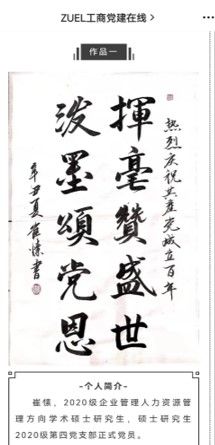 ZUEL工商党建在线
作品一
热烈庆祝共产党成立百年
揮毫贊盛世
泼墨頌党恩
辛丑夏崔愫書
-个人简介-
崔愫，2020级企业管理人力资源管
理方向学术硕士研究生，硕士研究生
2020级第四党支部正式党员。